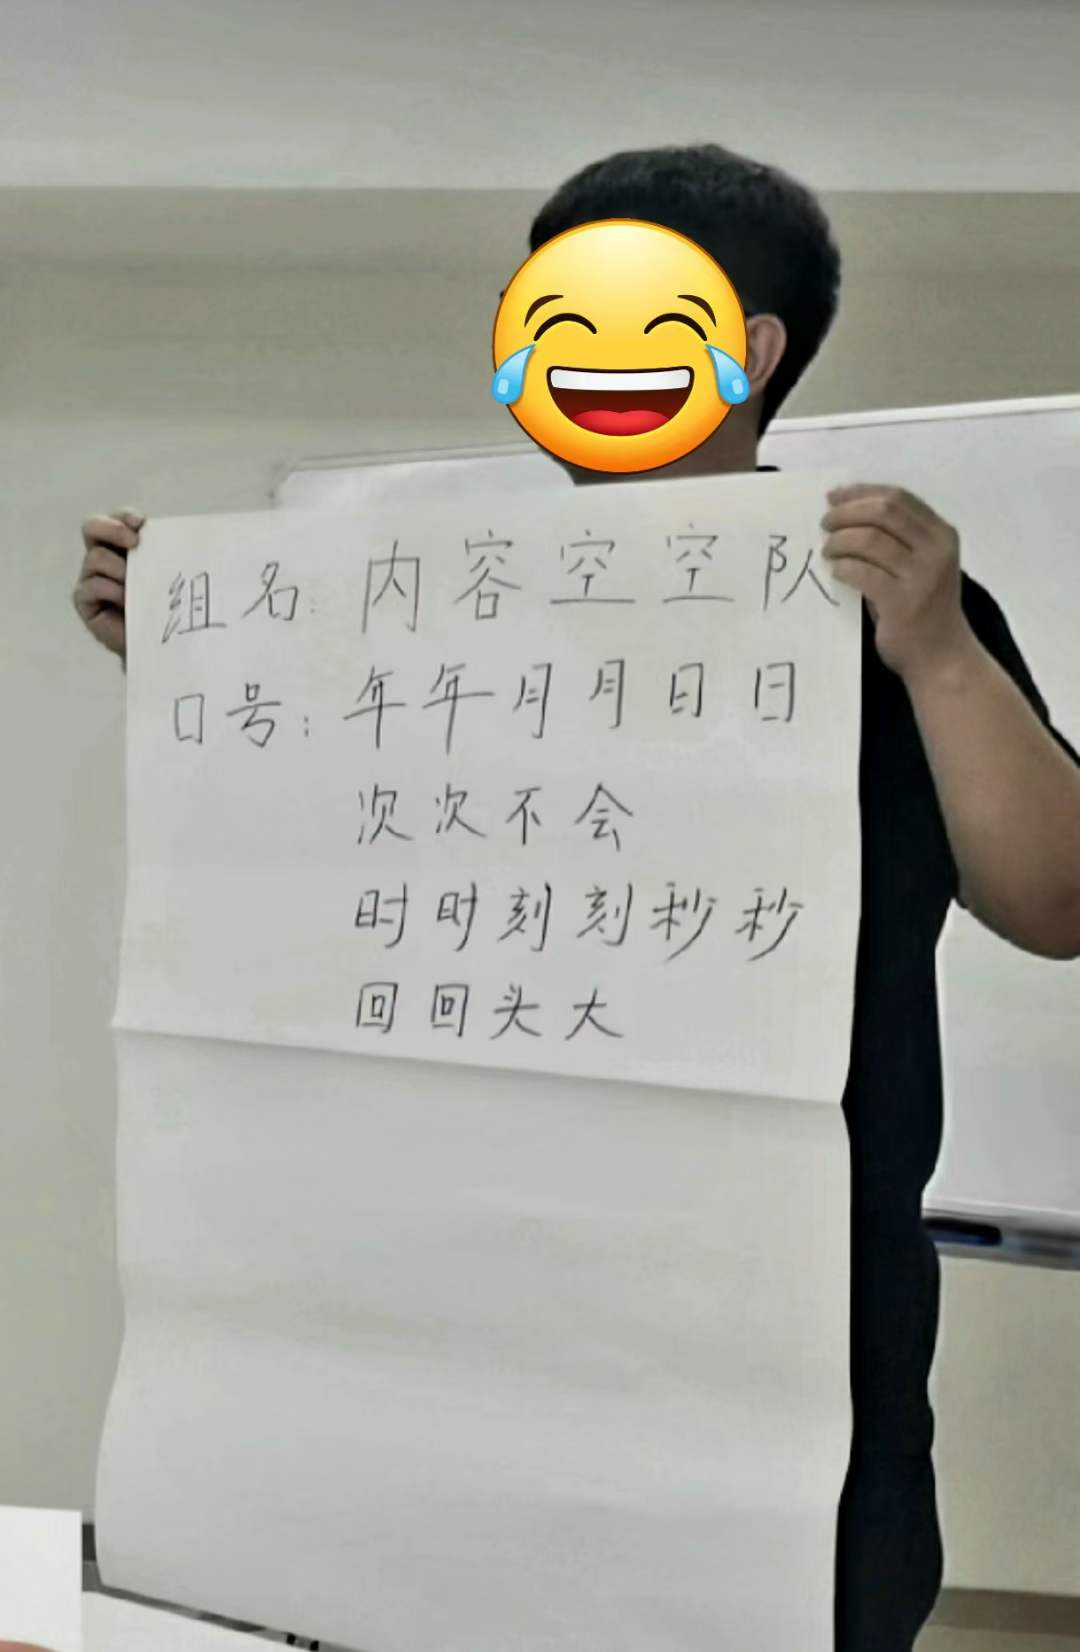 组名：内容空空队
口号：年年月月日日
次次不会
时时刻刻秒秒
回回头大